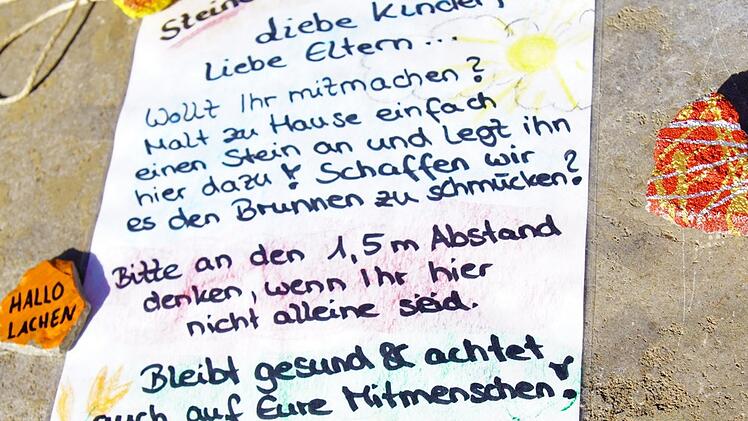 Steine
Liebe Kinder,
Liebe Eltern...
Wollt Ihr mitmachen?
Malt zu Hause einfach
einen Stein an und legt ihn
hier dazu! Schaffen wir
es den Brunnen zu schmücken?
Bitte an den 1,5m Abstand
denken, wenn Ihr hier
nicht alleine seid.
Bleibt gesund & achtet
auch auf Eure Mitmenschen!
HALLO
LACHEN